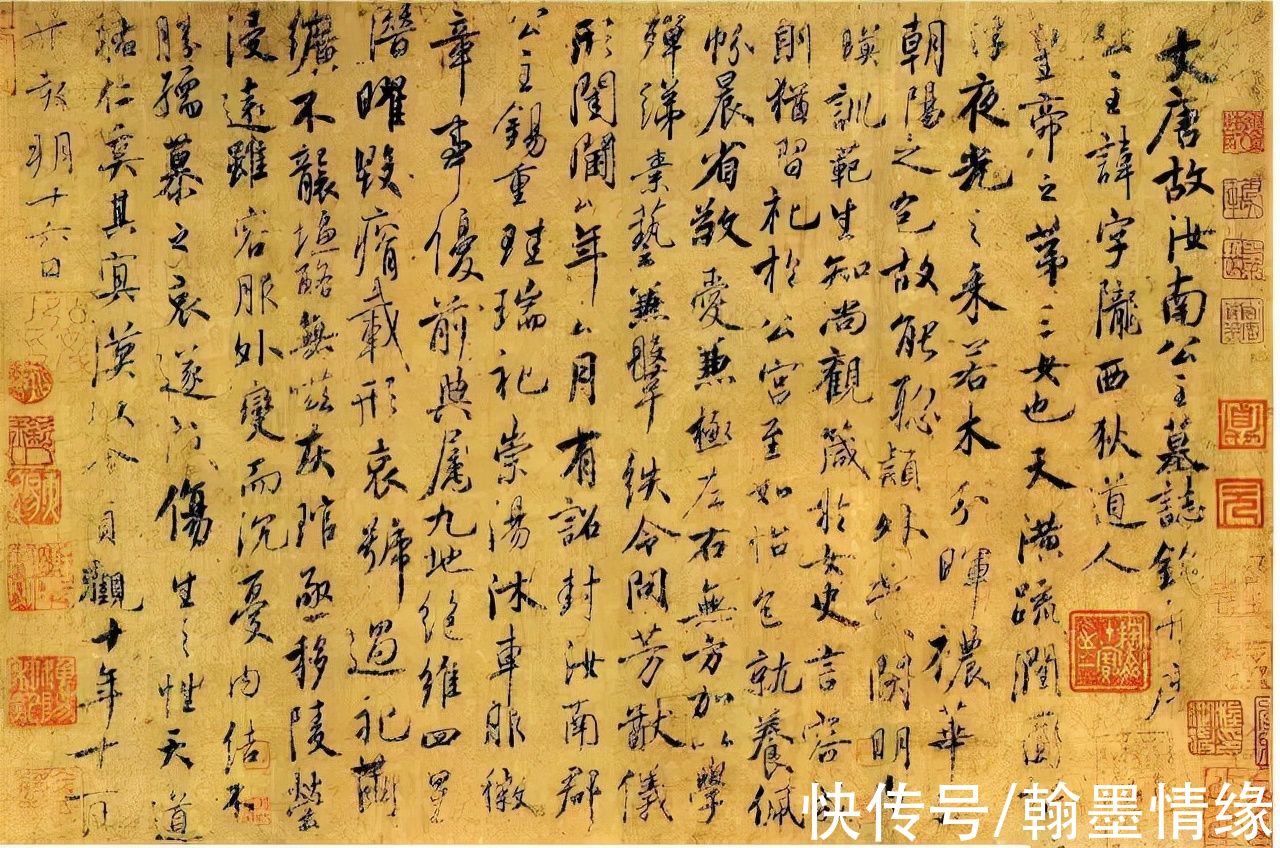 大唐故汝南公主墓誌銘并序
公主諱字隴西狄道人
皇帝之第三女也天潢疏潤圓折
浮夜光之采若木分暉穠華
朝陽之色故能聡穎外發閑明
暎訓範生知尚觀箴於女史言容
則猶習礼於公宮至如怡色就養佩
帉晨省敬愛兼極左右無方加以學
殫綈素藝兼鞶紩令問芳猷儀
形閨閫厶年厶月有詔封汝南郡
公主錫重珪瑞礼崇湯沐車服徽
章事優前典屬九地絕維四星
潛曜毀瘠載形哀號過礼繭
纊不襲塩酪無嗞灰琯亟移陵塋
浸遠雖容服外變而沉憂內結不
勝孺慕之哀遂成傷生之性天道
祐仁奚其冥漠以今貞觀十年十一月
丁亥朔十六日
快传号/翰墨情缘